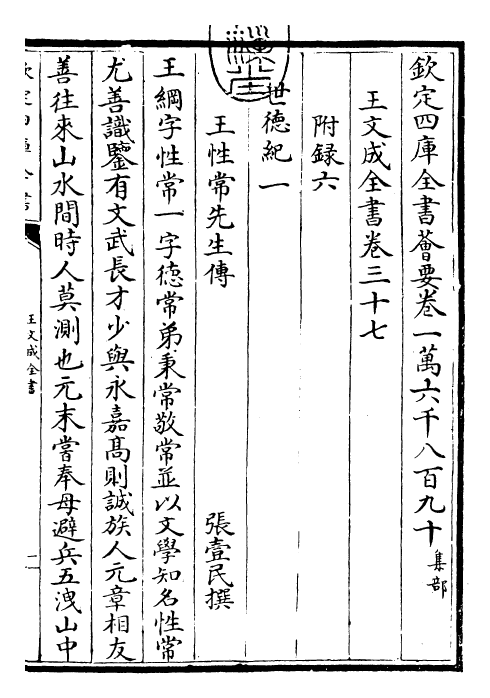 欽定四庫全書薈要卷一萬六千八百九十 集部
王文成全書卷三十七
附録六
世徳紀一
王性常先生傳
張壹民撰
王綱字性常一字徳常弟秉常敬常並以文學知名性常
尤善識鑒有文武長才少與永嘉髙則誠族人元章相友
善往來山水間時人莫測也元末嘗奉母避兵五洩山中
欽定四庫全書
王文成全書
一